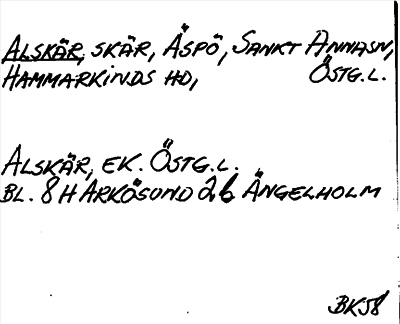 ALSKÄR, SKÄR, ÄSPÖ, SANKT ANNASN,
HAMMARKINDS HD, ÖSTG.L.
ALSKÄR, EK. ÖSTG.L.
BL. 8H ARKÖSUND 2b ÄNGELHOLM
BK58